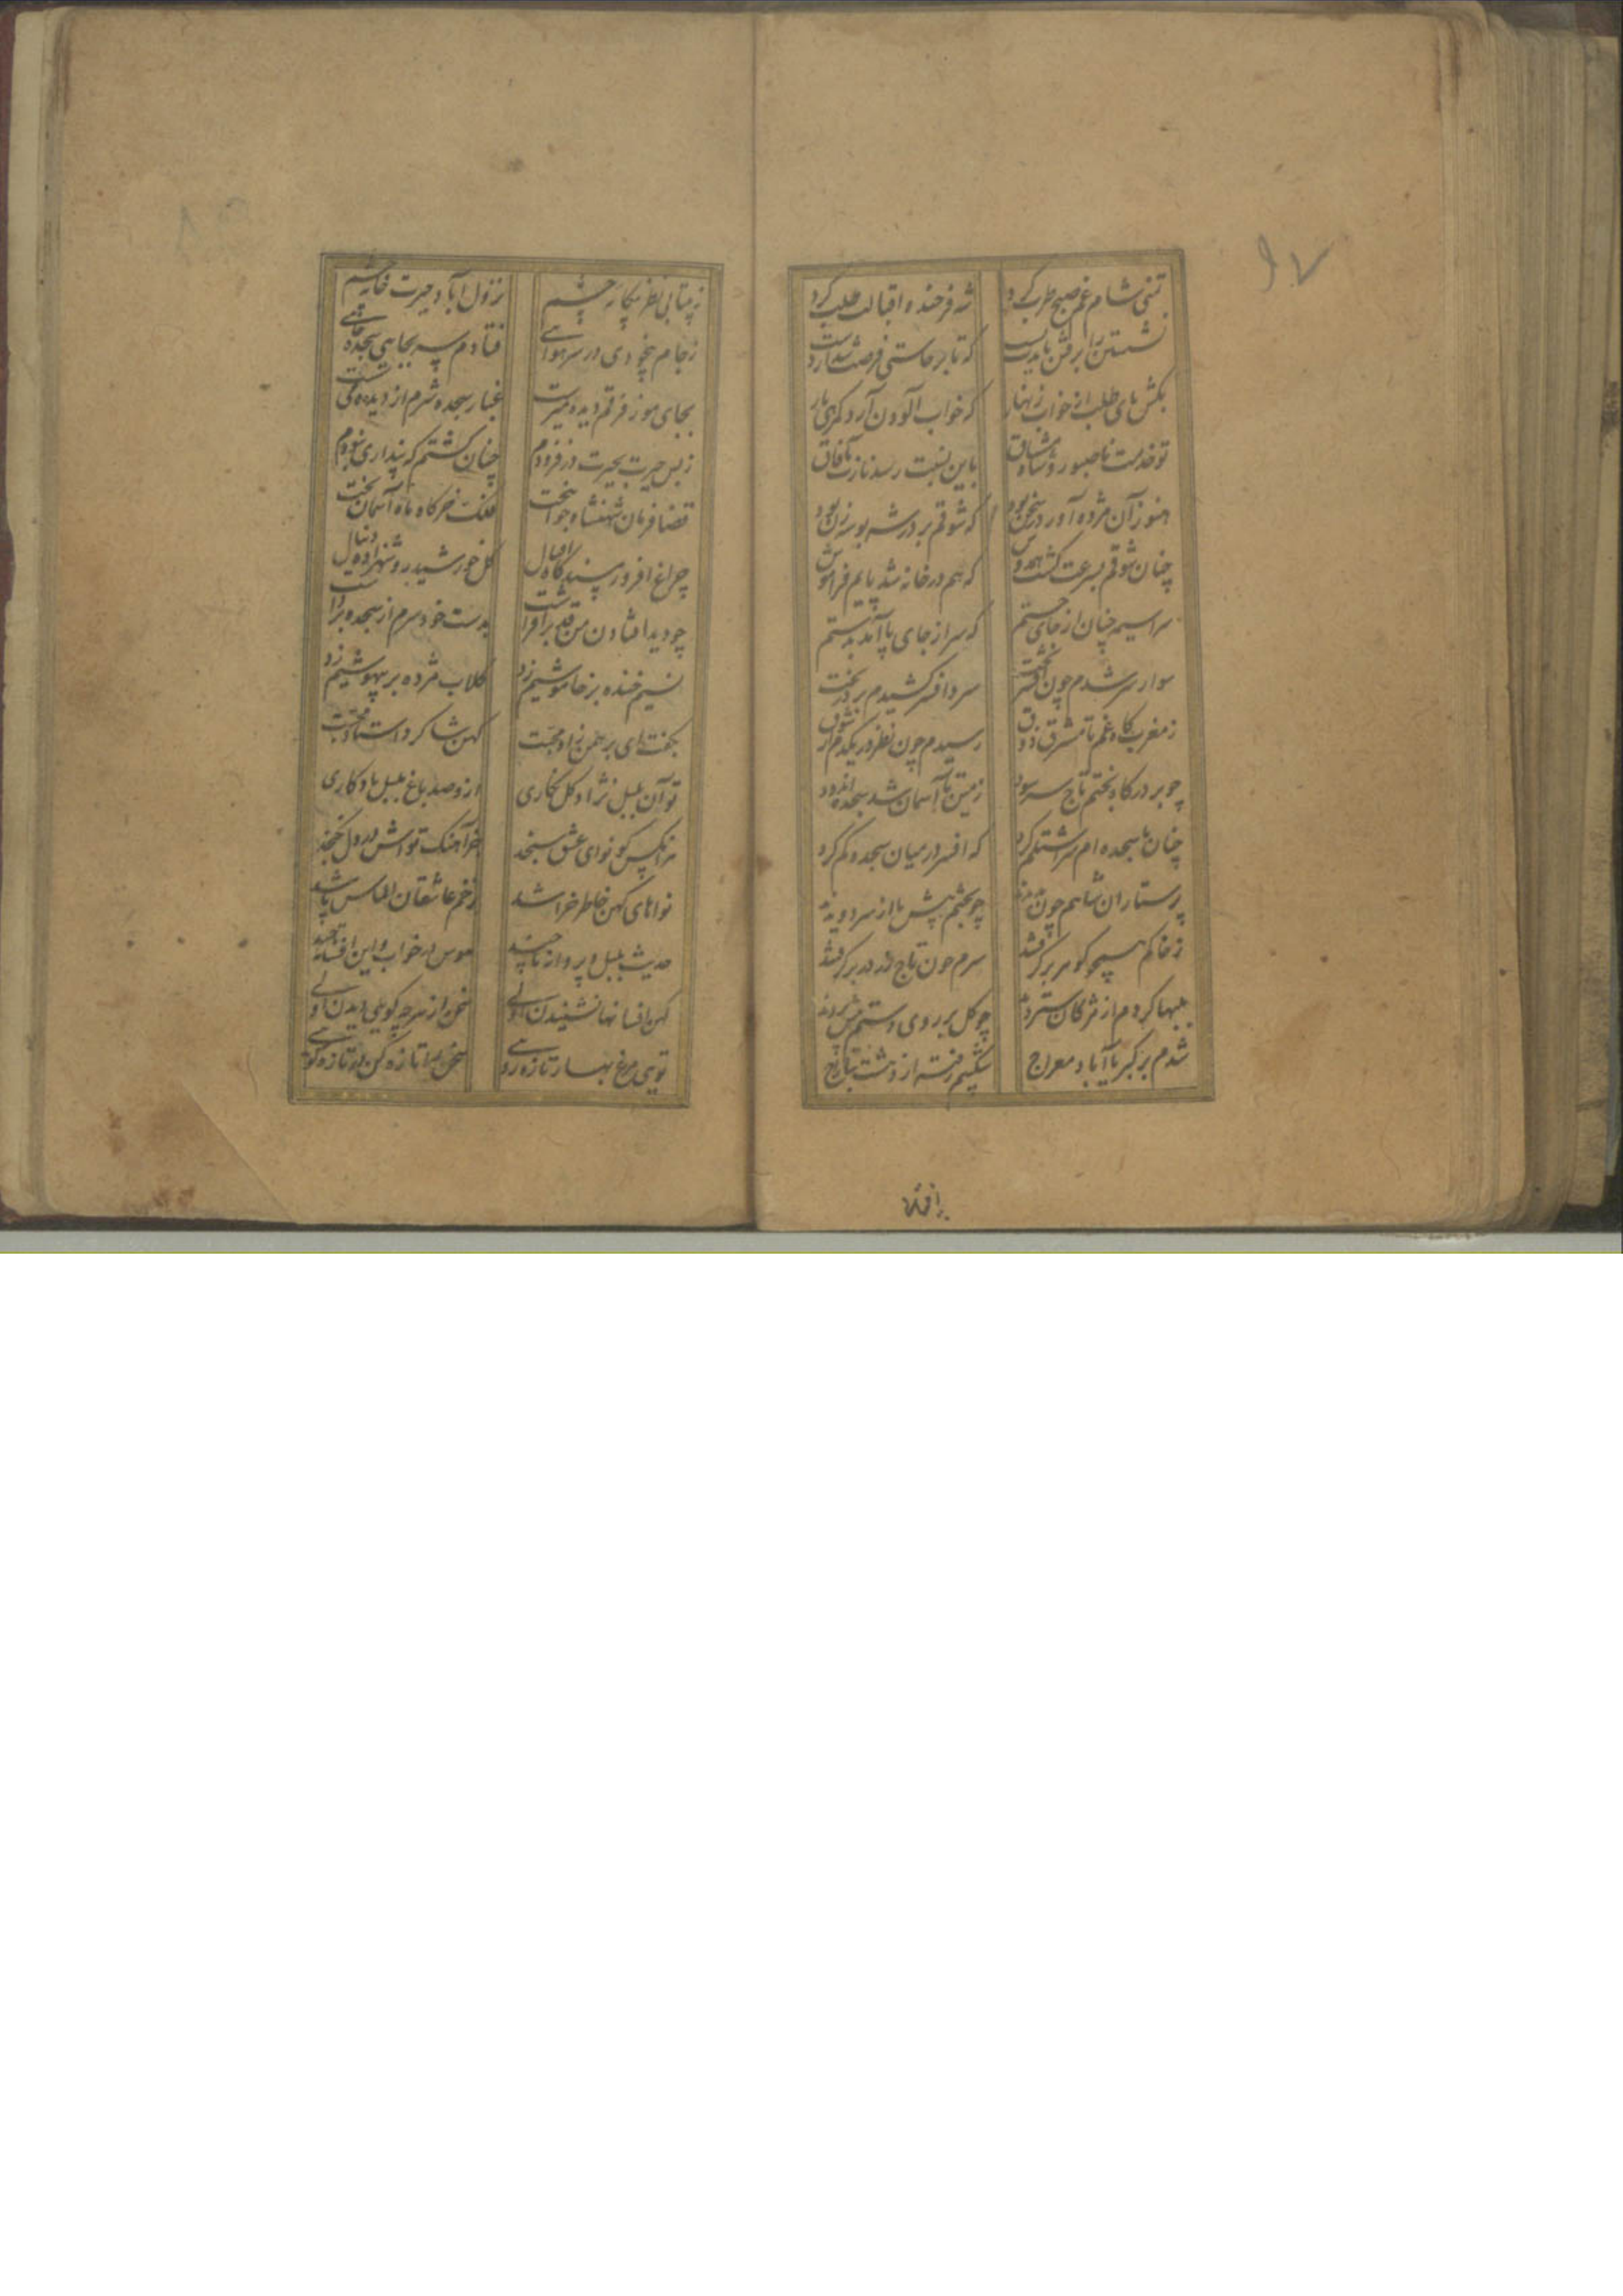 شه فرخنده اقبالت طلب کرد
که خواب آلودن آرد کمرهی بار
باین نسبت رسد نازت بآفاق
هنوز آن مژده آور در سخن بود
که شوقم بر در شه بوسه زن بود
چنان شوقم بسرعت گشت همدوش
که هم در خانه شد پایم فراموش
سراسیمه چنان از جای جستم
که سر از جای پا آمد بدستم
سوار سر شدم چون
سر و افسر کشیدم بر در بخت
ز مغرب گاه غم تا مشرق ذوق
رسیدم چون نظر در یکدم از شوق
چو بر درگاه بختم تاج سر سود
زمین تا آسمان شد سجده اندود
چنان با سجده ام سررشته کم کرد
که افسر در میان سجده گم کرد
پرستاران شاهم چون
چو بختم پیش پا از سر دویدند
ز خاکم همچو گوهر بر گرفتند
سرم چون تاج در بر گرفتند
کردم از مژگان ستردند
چو گل بر روی دستم پیش بردند
شدم بر کبریا آباد معراج
شکیبم رفته از دهشت بتاراج
۹۷
ز بیتابی نظر بیگانه چشم
نزول آباد حیرت خانه چشم
ز جام بیخودی در سر هوائی
فتادم سر بجایی سجده جائی
بجای مو ز فرقم دیده میرست
غبار سجده شرم از دیده می شست
ز بس حیرت بحیرت در فزودم
چنان گشتم که پنداری نبودم
قضا فرمان شهنشاه جوان بخت
فلک خرگاه ماه آسمان تخت
چراغ افروز پیشگاه اقبال
گل خورشید رو شهزاده دنیال
چو دید افتادن من قد برافراشت
بدست خود سرم از سجده برداشت
نسیم خنده بر خاموشیم زد
گلاب مژده بر بیهوشیم زد
بگفت ای برهمن زاد محبت
کهن شاگرد استاد محبت
تو آن بلبل نژاد گل نگاری
از و صد باغ بلبل یادگاری
هر آنکس کو نوای عشق سنجد
جز آهنگ تو اش در دل نگنجد
نواهای کهن خاطر خراشد
ز خم عاشقان الماس پاشد
حدیث بلبل و پروانه تا چند
هوس در خواب و این افسانه تا چند
کهن افسانها نشنیدن اولی
سخن از هر چه گویی دیدن اولی
تویی مرغ بهار تازه روئی
سخن را تازه کن از تازه گوئی